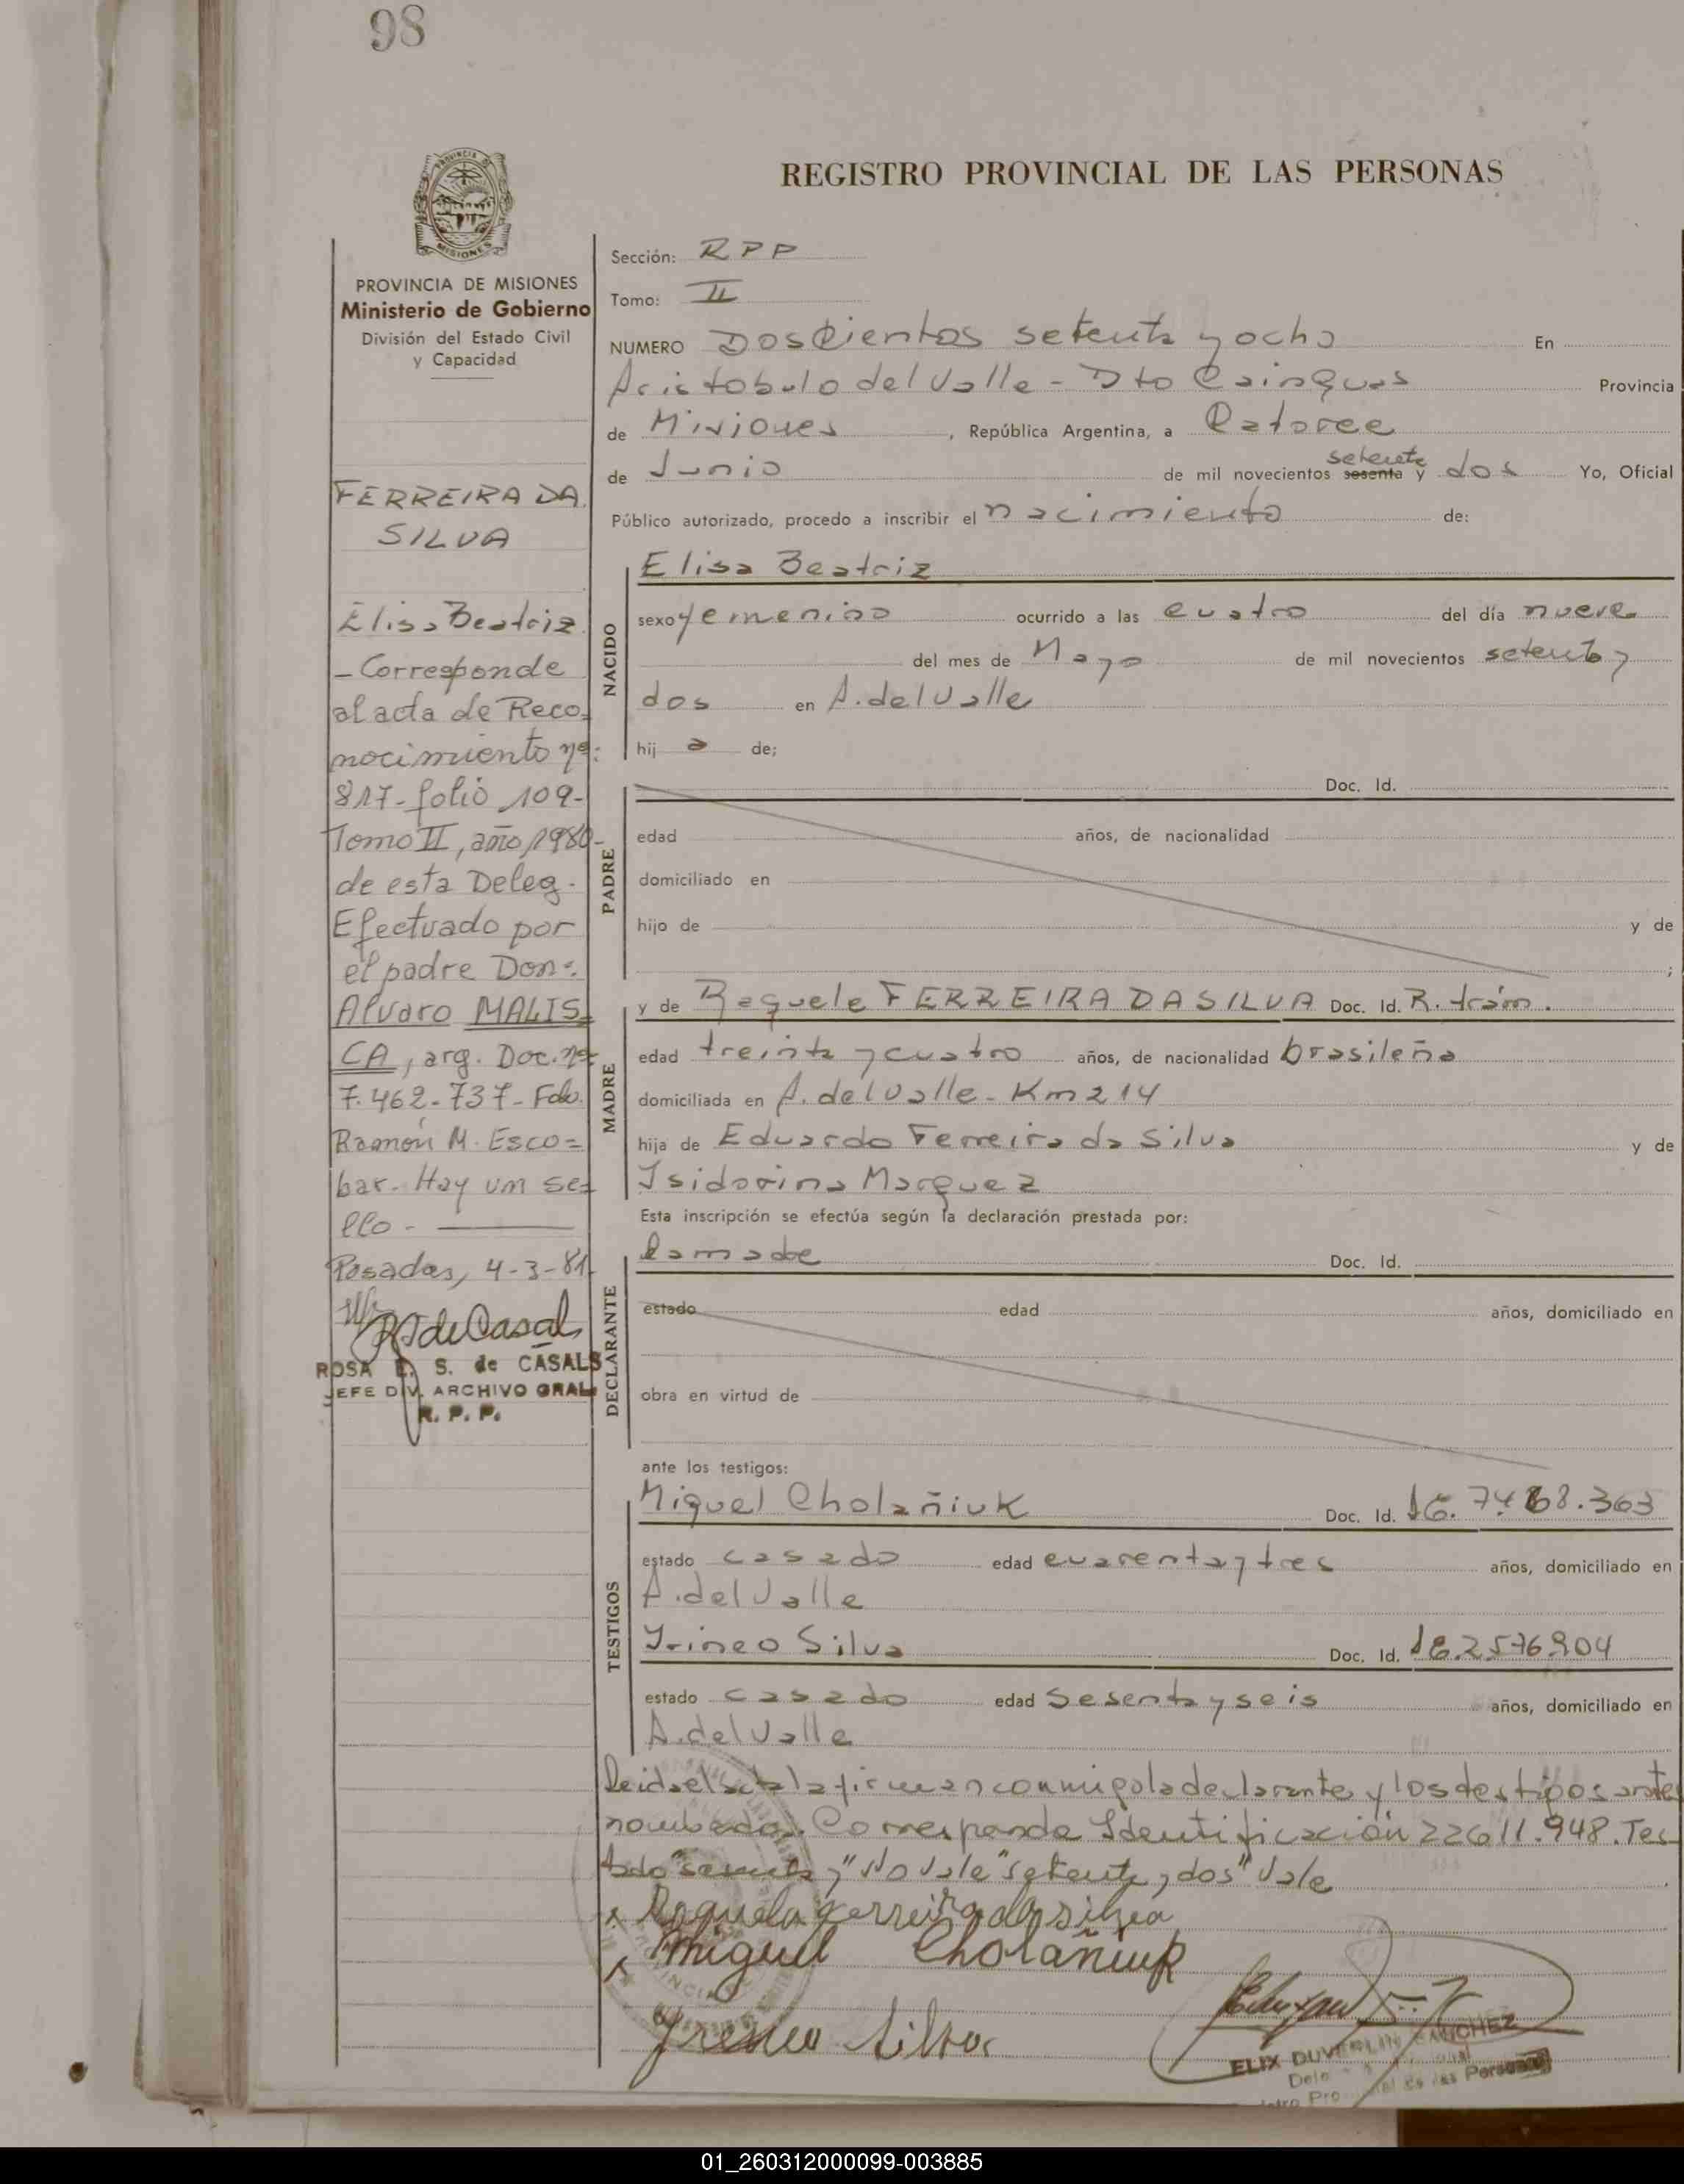 98
REGISTRO PROVINCIAL DE LAS PERSONAS
PROVINCIA DE MISIONES
Ministerio de Gobierno
División del Estado Civil
y Capacidad
FERREIRA DA
SILVA
Elisa Beatriz
- Corresponde
al acta de Reco-
nocimiento nº:
817- folio 109-
Tomo II, año 1980-
de esta Deleg.
Efectuado por
el padre Don:
Alvaro MALIS=
CA, arg. Doc. nº
7.462.737- Fdo.
Ramón M. Esco=
bar- Hay un se=
llo -
Posadas, 4-3-81
ROSA E. S. de CASALS
JEFE DIV. ARCHIVO GRAL
R. P. P.
Sección: RPP
Tomo: II
NUMERO Doscientos setenta y ocho En
Aristobulo del Valle - Dto Cainguas Provincia
de Misiones, República Argentina, a Catorce
de Junio de mil novecientos sesenta y setenta dos Yo, Oficial
Público autorizado, procedo a inscribir el nacimiento de:
NACIDO
Elisa Beatriz
sexo femenino ocurrido a las cuatro del día nueve
del mes de Mayo de mil novecientos setenta y
dos en A. del Valle
hij a de;
PADRE
Doc. Id.
edad años, de nacionalidad
domiciliado en
hijo de y de
;
MADRE
y de Raquele FERREIRA DA SILVA Doc. Id. R. trám.
edad treinta y cuatro años, de nacionalidad brasileña
domiciliada en A. del Valle - Km 214
hija de Eduardo Ferreira da Silva y de
Isidorina Marquez
Esta inscripción se efectúa según la declaración prestada por:
DECLARANTE
la madre Doc. Id.
estado edad años, domiciliado en
obra en virtud de
ante los testigos:
TESTIGOS
Miguel Cholañiuk Doc. Id.
estado casado edad cuarenta y tres años, domiciliado en
A. del Valle
Irineo Silva Doc. Id.
estado casado edad sesenta y seis años, domiciliado en
A. del Valle
Leida el acta la firman conmigo la declarante y los testigos antes
nombrados. Corresponde Identificación 22611.948. Tes-
tado "sesenta y" No Vale "setenta y dos" Vale
Raquela Ferreira da silva
Miguel Cholañiuk
Irineo Silva
ELIX DUVERLIN SANCHEZ
01_260312000099-003885